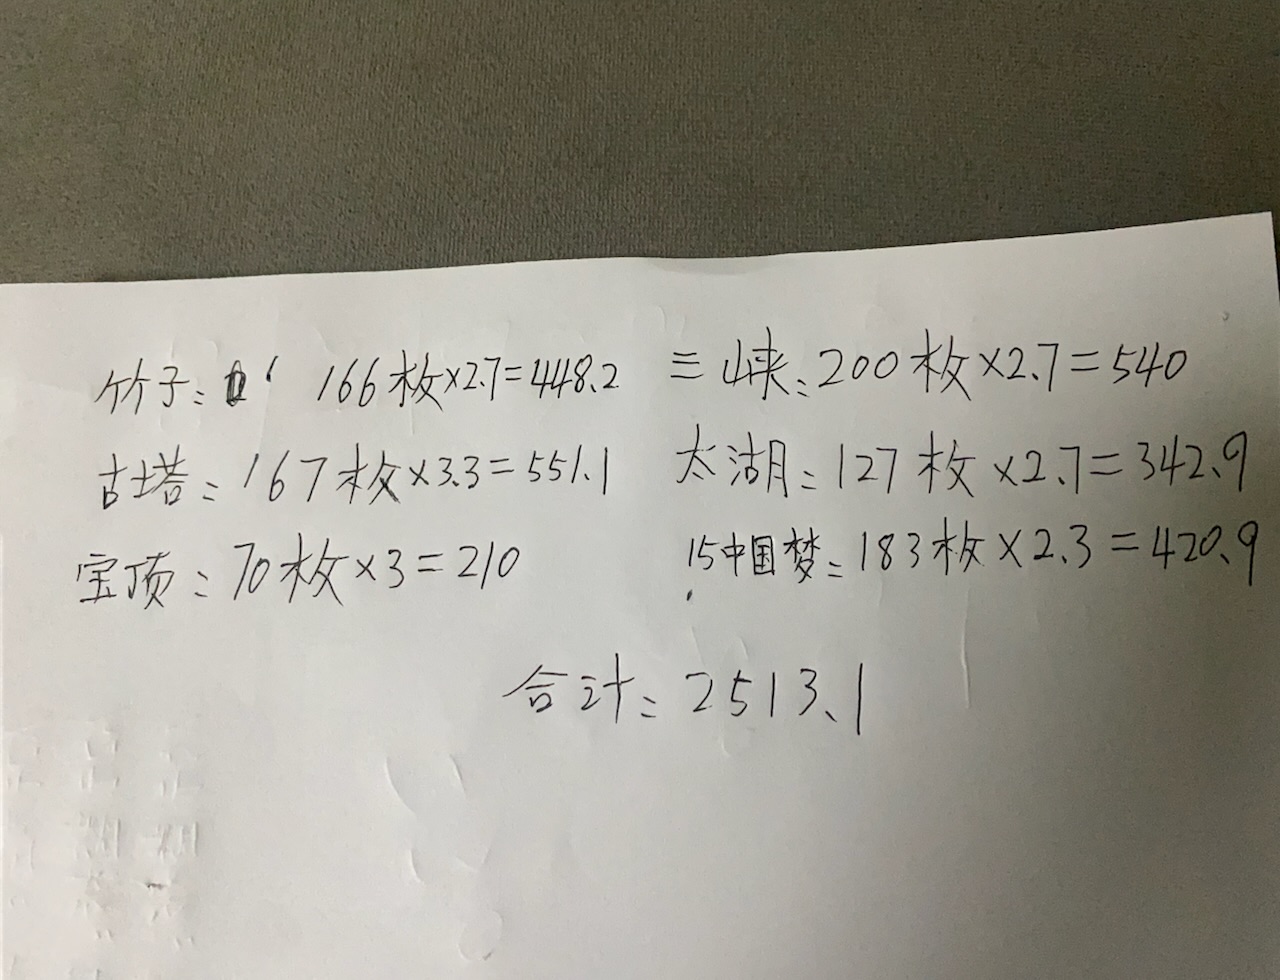 竹子: 166枚×2.7=448.2 三峡:200枚×2.7=540
古塔:167枚×3.3=551.1 太湖月:127枚×2.7=342.9
宝顶:70枚×3=210 15中国梦:183枚×2.3=420.9
合计:2513.1